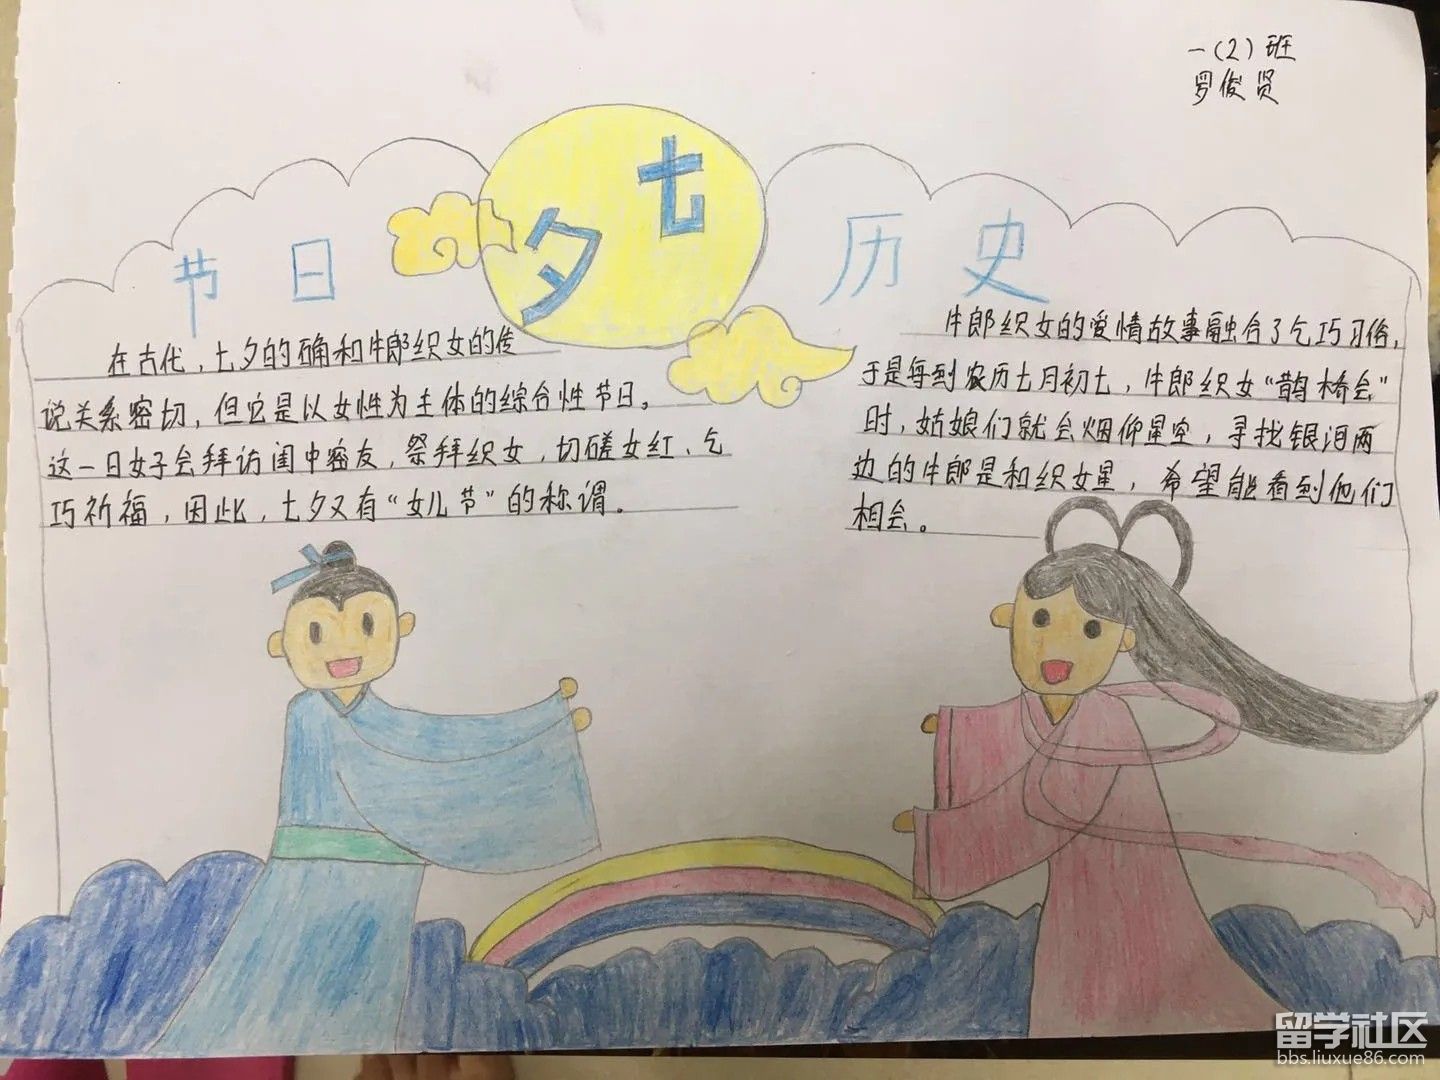 一(2)班
罗俊贤
七夕
节日
历史
在古代，七夕的确和牛郎织女的传
说关系密切，但它是以女性为主体的综合性节日。
这一日女子会拜访闺中密友，祭拜织女，切磋女红、乞
巧祈福，因此，七夕又有“女儿节”的称谓。
牛郎织女的爱情故事融合了乞巧习俗，
于是每到农历七月初七，牛郎织女“鹊桥会”
时，姑娘们就会烟仰星空，寻找银河两
边的牛郎星和织女星，希望能看到他们
相会。
留学社区
bbs.liuxue86.com